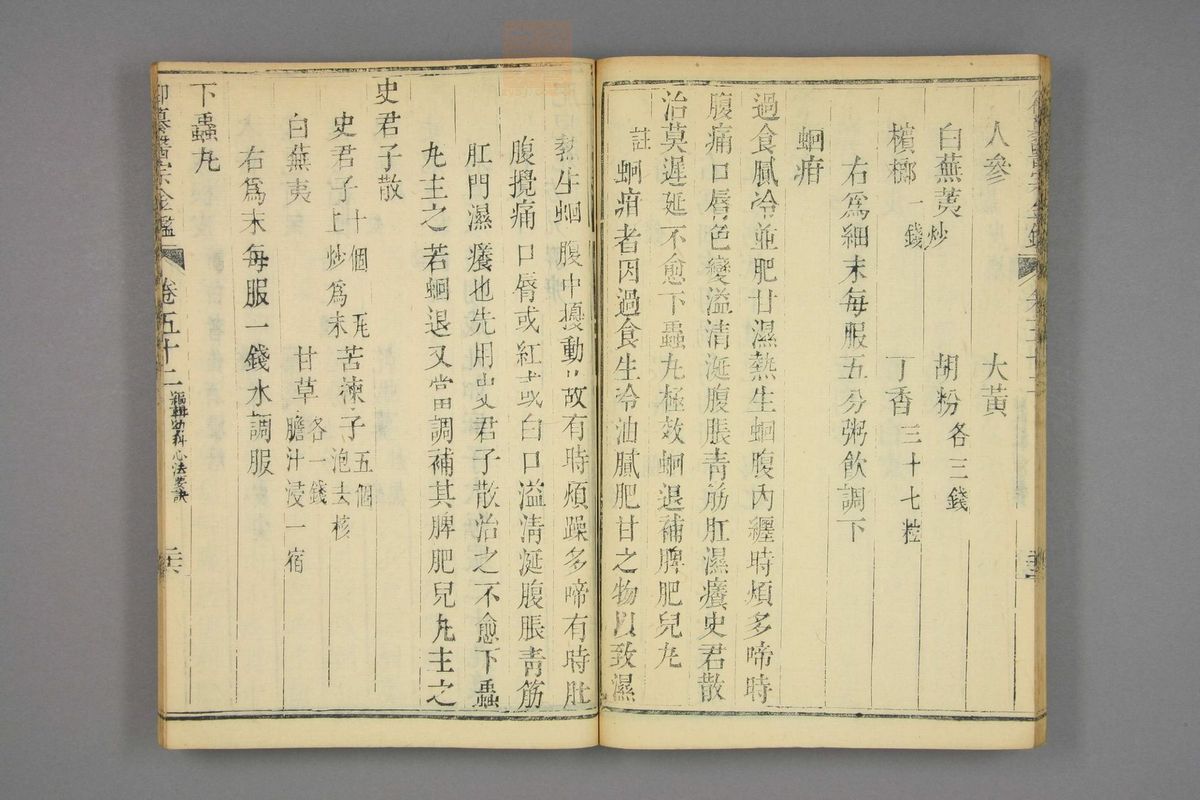 人參　大黃
白蕪荑炒　胡粉各三錢
檳榔一錢　丁香三十七粒
右爲細末每服五分粥飲調下
蛔疳
過食膩冷並肥甘濕熱生蛔腹內纏時煩多啼時
腹痛口唇色變溢清涎腹脹青筋肛濕癢史君散
治莫遲延不愈下蟲丸極效蛔退補脾肥兒丸
註蛔疳者因過食生冷油膩肥甘之物以致濕
熱生蛔腹中擾動故有時煩躁多啼有時肚
腹攪痛口唇或紅或白口溢清涎腹脹青筋
肛門濕癢也先用史君子散治之不愈下蟲
丸主之若蛔退又當調補其脾肥兒丸主之
史君子散
史君子十個瓦上炒爲末　苦楝子五個泡去核
白蕪夷　甘草各一錢膽汁浸一宿
右爲末每服一錢水調服
下蟲丸
御纂醫宗金鑑　卷五十二　編輯幼科心法要訣